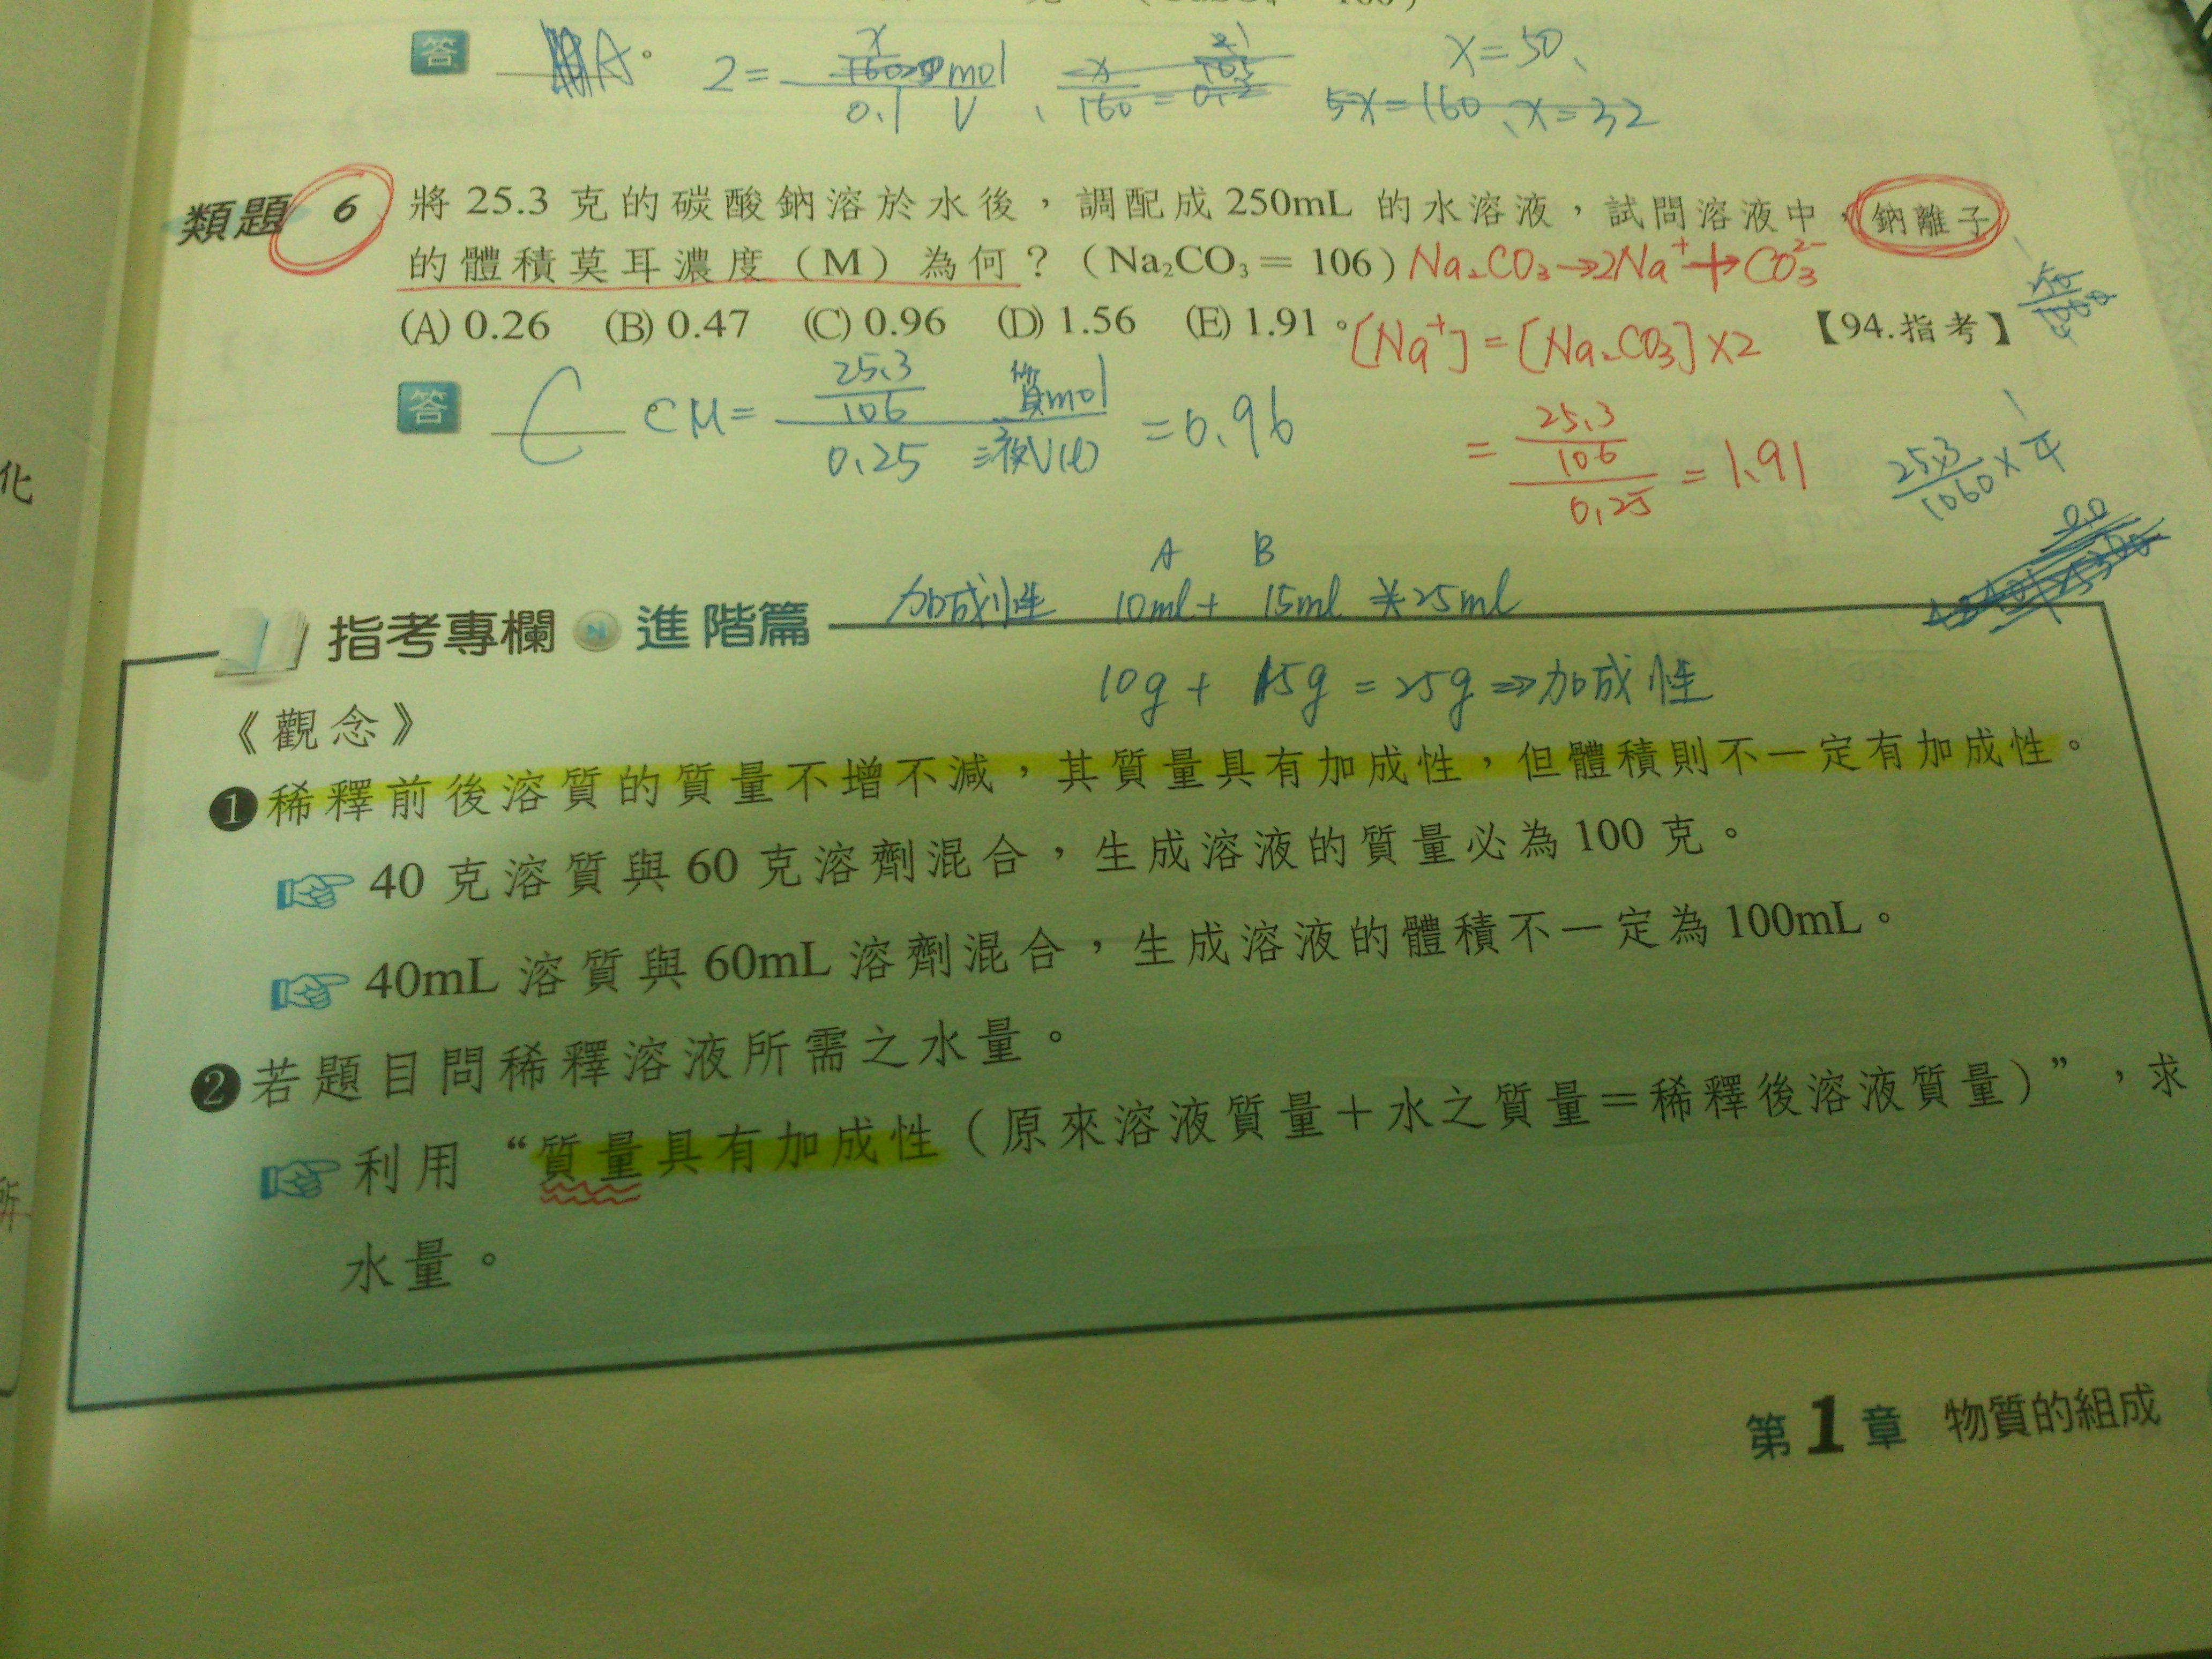 答 A。 2 = mol 0.1 V x = 50、
5x = 160、x = 32
類題 6 將 25.3 克的碳酸鈉溶於水後，調配成 250mL 的水溶液，試問溶液中，鈉離子
的體積莫耳濃度（M）為何？（Na₂CO₃ = 106） Na₂CO₃→2Na⁺+CO₃²⁻
(A) 0.26 (B) 0.47 (C) 0.96 (D) 1.56 (E) 1.91。 [Na⁺] = [Na₂CO₃]×2 【94.指考】
答 C CM = 25.3/106 / 0.25 質mol / 液V(l) = 0.96
= 25.3/106 / 0.25 = 1.91
25.3/1060 × 1/4
A B
加成性 10ml + 15ml ≠ 25ml
指考專欄 進階篇
10g + 15g = 25g ⇒ 加成性
《觀念》
❶稀釋前後溶質的質量不增不減，其質量具有加成性，但體積則不一定有加成性。
☞ 40 克溶質與 60 克溶劑混合，生成溶液的質量必為 100 克。
☞ 40mL 溶質與 60mL 溶劑混合，生成溶液的體積不一定為 100mL。
❷若題目問稀釋溶液所需之水量。
☞ 利用 “質量具有加成性（原來溶液質量＋水之質量＝稀釋後溶液質量）”，求
水量。
第 1 章 物質的組成
化
所